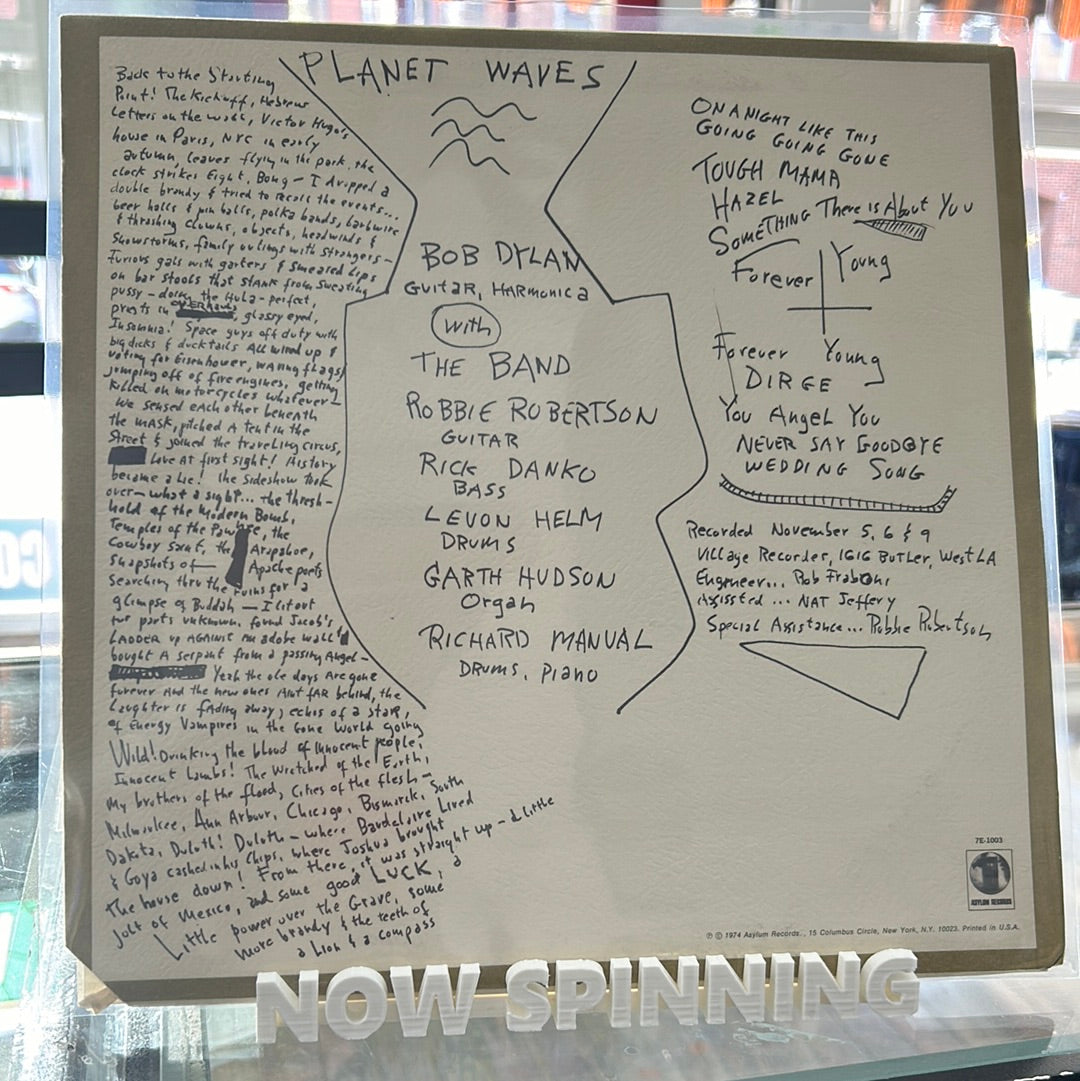 PLANET WAVES
Back to the Starting
Point! The Kickoff, Hebrew
Letters on the wall, Victor Hugo's
house in Paris, NYC in early
autumn, leaves flying in the park, the
clock strikes Eight, Bong — I dropped a
double brandy & tried to recall the events...
beer halls & pin balls, polka bands, barbwire
& thrashing clowns, objects, headwinds &
snowstorms, family outings with strangers —
Furious gals with garters & smeared Lips
on bar stools that stank from sweating
pussy — doing the Hula — perfect,
priests in overhauls, glassy eyed,
Insomnia! Space guys off duty with
big dicks & ducktails All wired up &
voting for Eisenhower, waving flags &
jumping off of fire engines, getting
killed on motorcycles whatever —
We sensed each other beneath
the mask, pitched A tent in the
Street & joined the traveling circus,
Love At first sight! History
became a Lie! the sideshow took
over — what a sight... the thresh-
hold of the Modern Bomb,
Temples of the Pawnee, the
Cowboy saint, the Arapahoe,
snapshots of — Apache poets
searching thru the ruins for a
glimpse of Buddah — I lit out
for parts unknown, found Jacob's
LADDER up AGAINST an adobe wall &
bought A serpent from a passing Angel —
Yeah the ole days Are gone
forever And the new ones Aint fAR behind, the
Laughter is fAding away, echos of a staR,
of Energy Vampires in the Gone World going
Wild! Drinking the blood of innocent people,
Innocent Lambs! The Wretched of the Earth,
My brothers of the flood, Cities of the flesh —
Milwaukee, Ann Arbour, Chicago, Bismarck, South
Dakota, Duluth! Duluth — where Baudelaire Lived
& Goya cashed in his Chips, where Joshua brought
the house down! From there, it was straight up — a little
jolt of Mexico, and some good LUCK, a
Little power over the Grave, some
more brandy & the teeth of
a Lion & a compass
BOB DYLAN
GUITAR, HARMONICA
with
THE BAND
ROBBIE ROBERTSON
GUITAR
RICK DANKO
BASS
LEVON HELM
DRUMS
GARTH HUDSON
Organ
RICHARD MANUAL
DRUMS, Piano
ON A NIGHT LIKE THIS
GOING GOING GONE
TOUGH MAMA
HAZEL
SOMETHING There is About You
Forever Young
Forever Young
DIRGE
You Angel You
NEVER SAY GOODBYE
WEDDING SONG
Recorded November 5, 6 & 9
Village Recorder, 1616 BUTLER, West LA
Engineer... Rob Fraboni
Assissted... NAT Jeffery
Special Assistance... Robbie Robertson
7E-1003
ASYLUM RECORDS
℗ © 1974 Asylum Records., 15 Columbus Circle, New York, N.Y. 10023. Printed in U.S.A.
NOW SPINNING